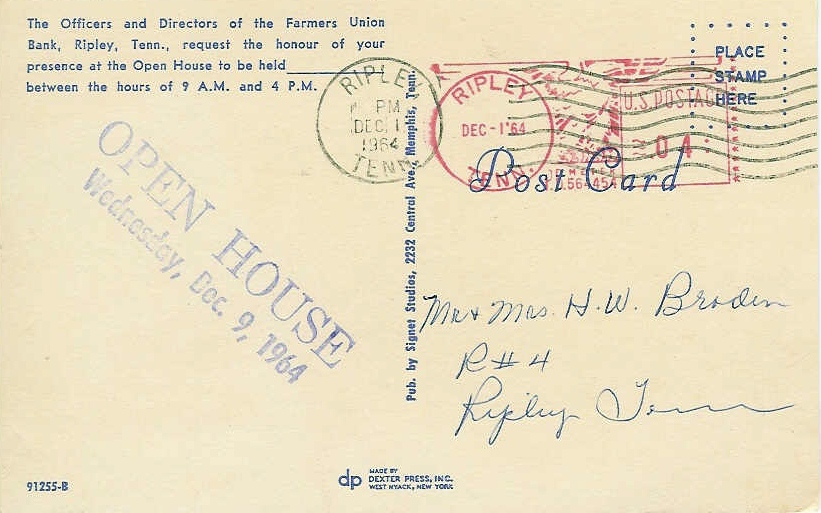 The Officers and Directors of the Farmers Union
Bank, Ripley, Tenn., request the honour of your
presence at the Open House to be held
between the hours of 9 A.M. and 4 P.M.
OPEN HOUSE
Wednesday, Dec. 9, 1964
RIPLEY
PM
DEC 1
1964
TENN.
RIPLEY
DEC-1'64
TENN.
U.S. POSTAGE
04
PLACE
STAMP
HERE
Post Card
Pub. by Signet Studios, 2232 Central Ave., Memphis, Tenn.
Mr & Mrs. H.W. Braden
R#4
Ripley Tenn
91255-B
dp
MADE BY
DEXTER PRESS, INC.
WEST NYACK, NEW YORK